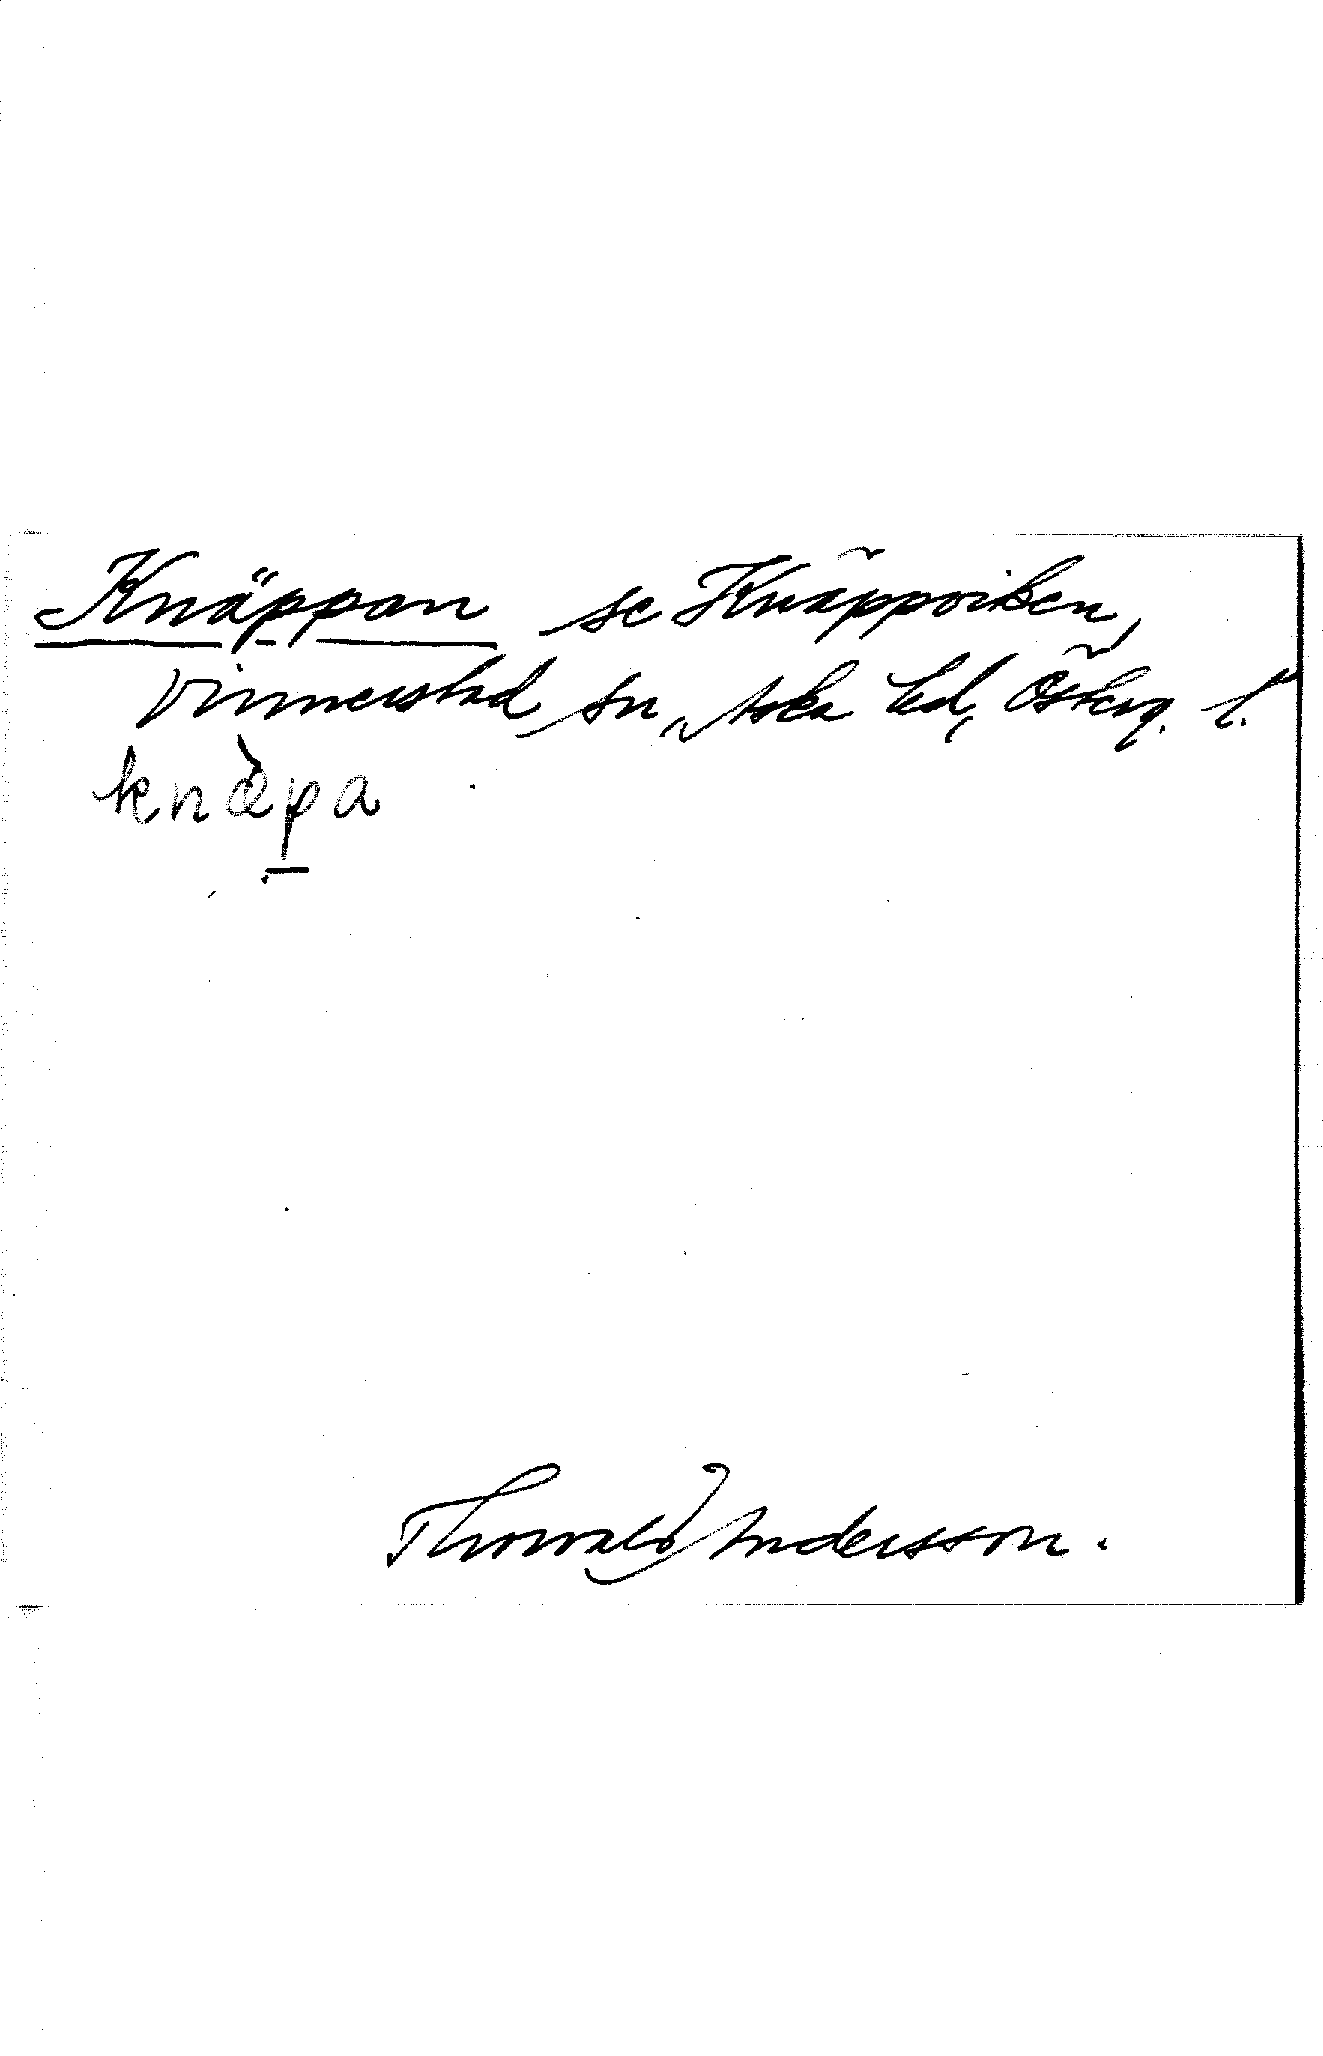 Knäppan se Knäppviken,
Vinnerstad sn, Aska hd, Österg. l.
knæ̀pa
Thorvald Andersson.